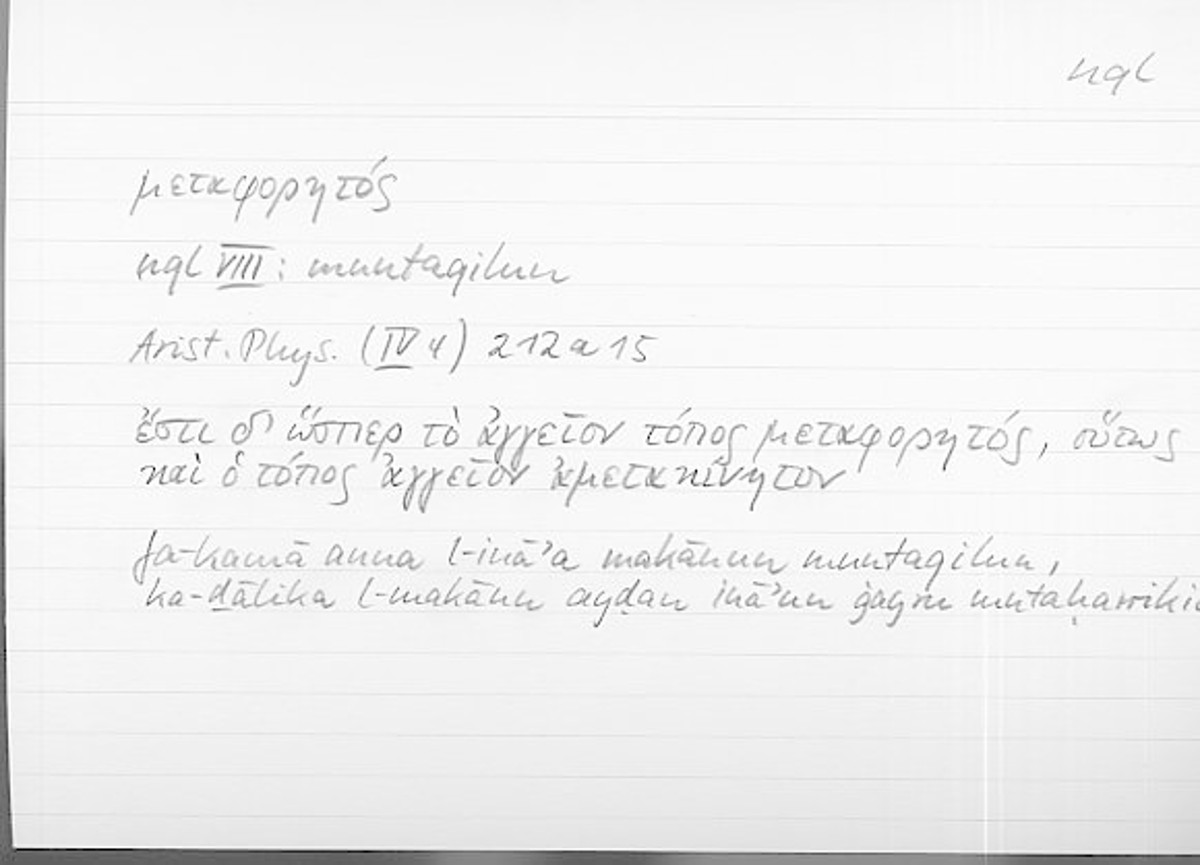 nql
μεταφορητός
nql VIII: muntaqilun
Arist. Phys. (IV 4) 212 a 15
ἔστι δ' ὥσπερ τὸ ἀγγεῖον τόπος μεταφορητός, οὕτως
καὶ ὁ τόπος ἀγγεῖον ἀμετακίνητον
fa-kamā anna l-inā'a makānun muntaqilun,
ka-ḏālika l-makānu ayḍan inā'un ġayru mutaḥarriki